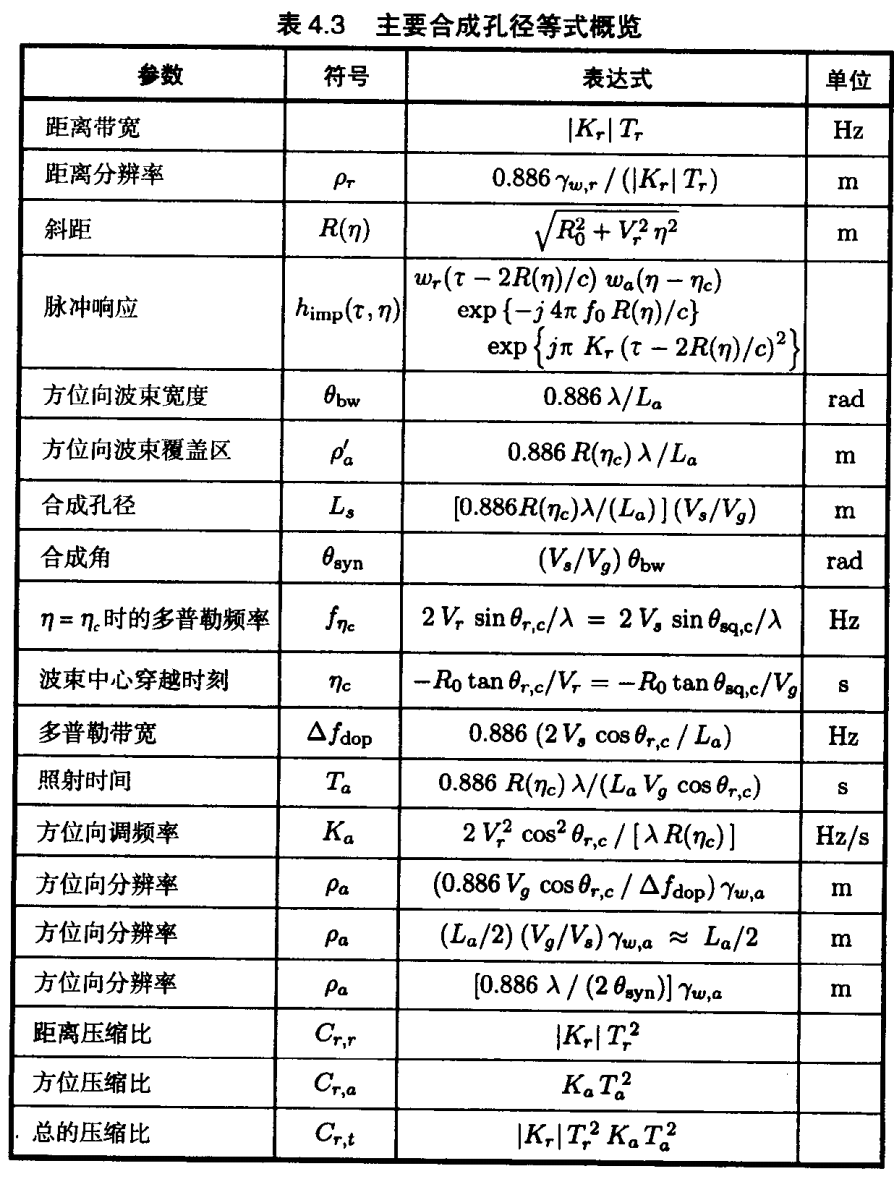 表 4.3 主要合成孔径等式概览
参数 符号 表达式 单位
距离带宽 |K_r| T_r Hz
距离分辨率 ρ_r 0.886 γ_{w,r} / (|K_r| T_r) m
斜距 R(η) √(R_0^2 + V_r^2 η^2) m
w_r(τ − 2R(η)/c) w_a(η − η_c)
脉冲响应 h_imp(τ, η) exp {−j 4π f_0 R(η)/c}
exp {jπ K_r (τ − 2R(η)/c)^2}
方位向波束宽度 θ_bw 0.886 λ/L_a rad
方位向波束覆盖区 ρ′_a 0.886 R(η_c) λ /L_a m
合成孔径 L_s [0.886R(η_c)λ/(L_a)] (V_s/V_g) m
合成角 θ_syn (V_s/V_g) θ_bw rad
η = η_c 时的多普勒频率 f_{η_c} 2 V_r sin θ_{r,c}/λ = 2 V_s sin θ_{sq,c}/λ Hz
波束中心穿越时刻 η_c −R_0 tan θ_{r,c}/V_r = −R_0 tan θ_{sq,c}/V_g s
多普勒带宽 Δf_dop 0.886 (2 V_s cos θ_{r,c} / L_a) Hz
照射时间 T_a 0.886 R(η_c) λ/(L_a V_g cos θ_{r,c}) s
方位向调频率 K_a 2 V_r^2 cos^2 θ_{r,c} / [λ R(η_c)] Hz/s
方位向分辨率 ρ_a (0.886 V_g cos θ_{r,c} / Δf_dop) γ_{w,a} m
方位向分辨率 ρ_a (L_a/2) (V_g/V_s) γ_{w,a} ≈ L_a/2 m
方位向分辨率 ρ_a [0.886 λ / (2 θ_syn)] γ_{w,a} m
距离压缩比 C_{r,r} |K_r| T_r^2
方位压缩比 C_{r,a} K_a T_a^2
总的压缩比 C_{r,t} |K_r| T_r^2 K_a T_a^2